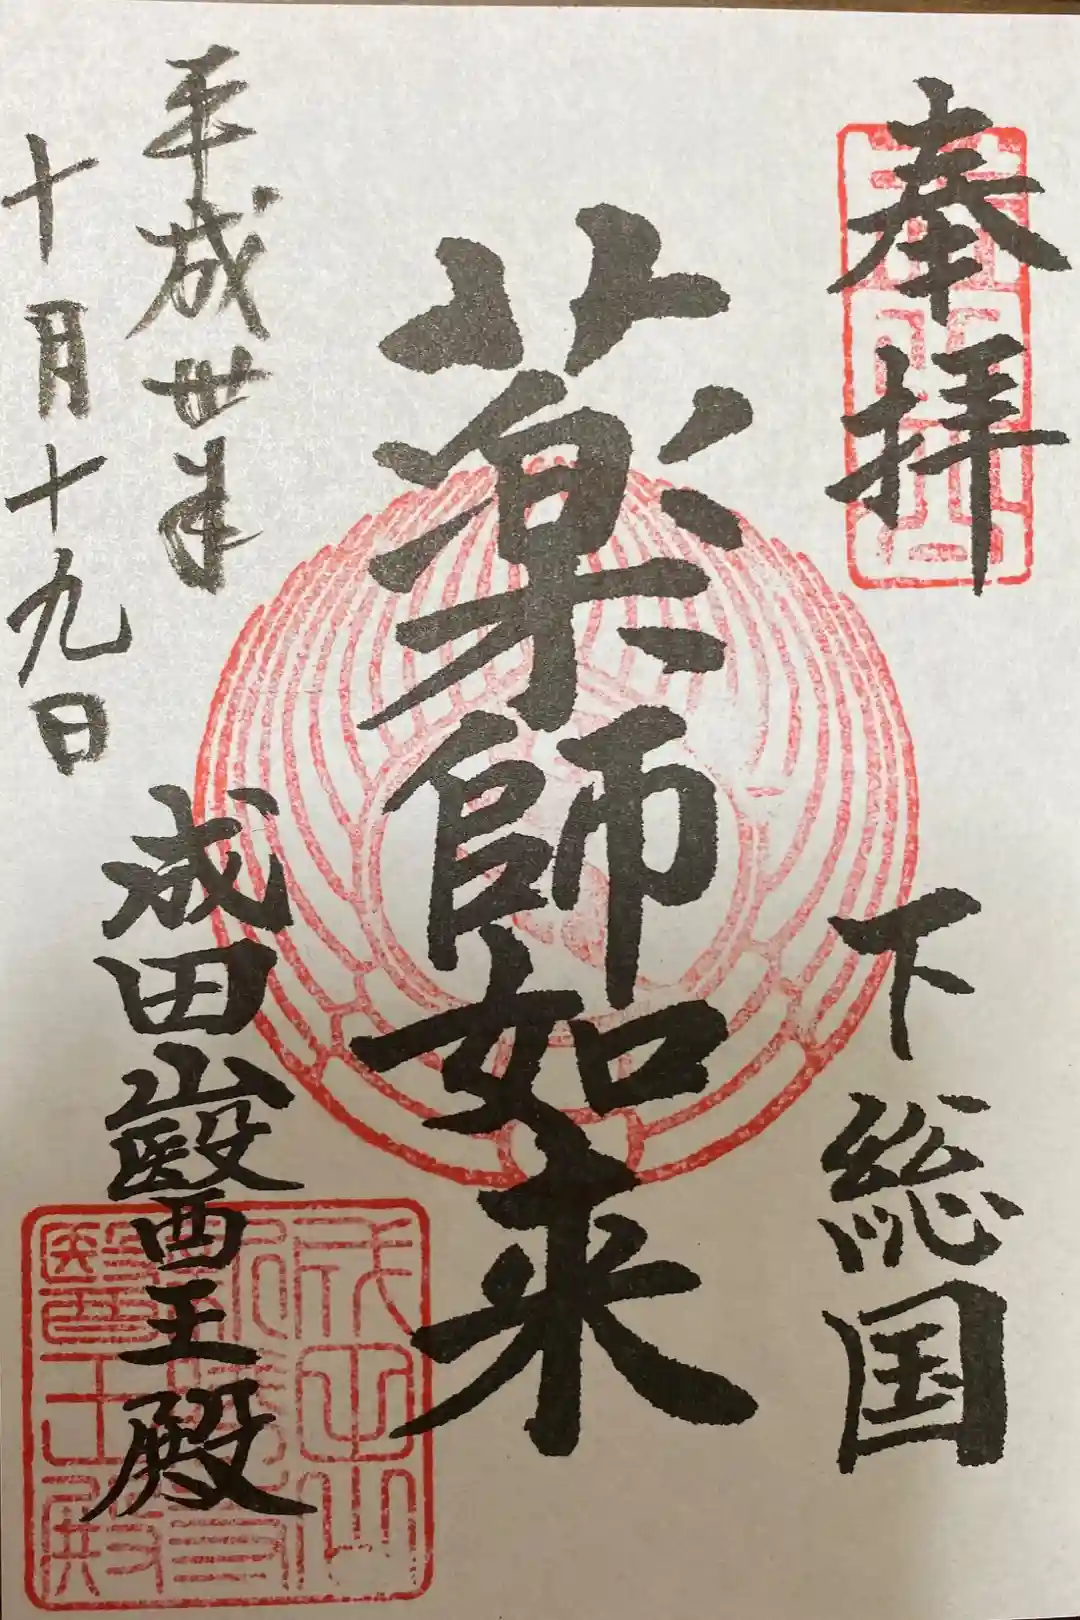 奉拝
下総国
薬師如来
成田山醫王殿
平成卅年
十月十九日